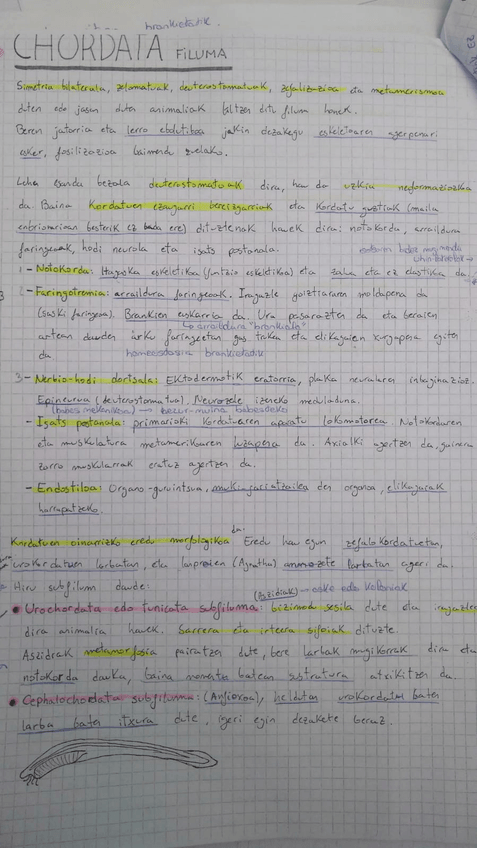 brankietatik.
CHORDATA FILUMA
Simetria bilaterala, zelomatuak, deuterostomatuak, zefalizazioa eta metamerismoa
duten edo jasan duten animaliak biltzen ditu filum honek.
Beren jatorria eta lerro ebolutiboa jakin dezakegu eskeletoaren agerpenari
esker, fosilizazioa baimendu zuelako.
Lehen esanda bezala deuterostomatuak dira, hau da uzkia neoformaziozkoa
da. Baina Kordatuen ezaugarri bereizgarriak eta Kordatu guztiak (maila
enbrionarioan besterik ez bada ere) dituztenak hauek dira: notokorda, arraildura
faringeoak, hodi neurala eta isats postanala.
1- Notokorda: Hagaxka eskeletikoa (funtzio eskeletikoa) eta zalua eta ez elastikoa da
- Faringotremia: arraildura faringeoak. Iragazle goiztiarraren moldapena da
(saski faringeoa). Brankien aurkaria da. Ura pasarazten da eta beraien
arraildura "brankiala"
artean dauden arku faringeetan gas trukea eta elikagaien kanporapena egiten
da.
homeostasia brankietatik
3- Nerbio-hodi dortsala: Ektodermotik eratorria, plaka neuralaren inbaginazioz.
Epineurua (deuterostomatua). Neurozele izeneko meduladuna.
(babes mekanikoa) → bezur-muina babesteko
- Isats postanala: primarioki Kordatuaren aparatu lokomotorea. Notokordaren
eta muskulatura metamerikoaren luzapena da. Axialki agertzen da, gainera
zorro muskularrak eratuz agertzen da.
- Endostiloa: Organo-guruintsua, mukia jariatzailea den organoa, elikagaiak
harrapatzeko.
Kordatuen oinarrizko eredu morfologikoa da. Eredu hau egun zefalokordatuetan,
urokordatuen larbatan, eta lanproien (Agnatha) ammozete larbatan ageri da.
Hiru subfilum daude:
(Aszidiak) - aske edo koloniak
• Urochordata edo tunicata subfiluma: bizimodu sesila dute eta iragazleak
dira animalia hauek. Sarrera eta irteera sifoiak dituzte.
Aszidiak metamorfosia pairatzen dute, bere larbak mugikorrak dira eta
notokorda dauka, baina momentu batean sustratura atxikitzen da.
• Cephalochordata subfiluma: (Anfioxoa), helduen urokordatu baten
larba baten itxura dute, igeri egin dezakete beraz.